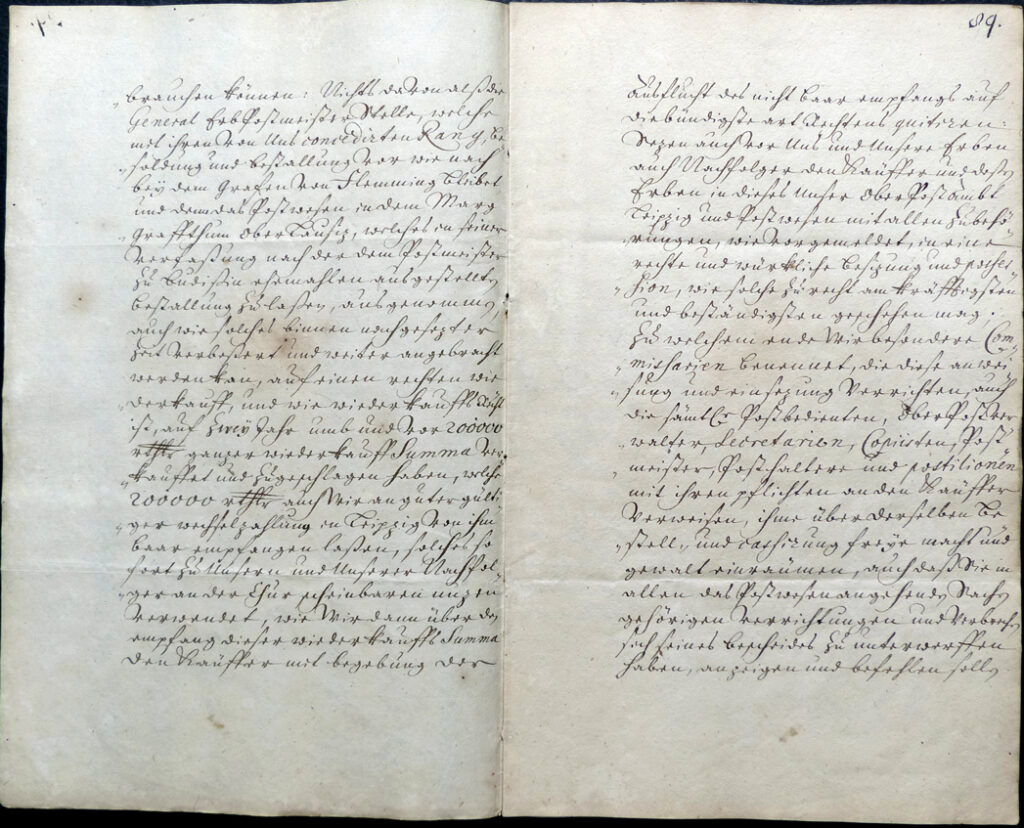 brauchen können: Nichts davon alß die
General ErbPostmeister Stelle, welche
mit ihren von Uns concedirten Rang, be-
soldung und bestallung vor wie nach
bey dem Grafen von Flemming bleibet
und dem das Postwesen in dem Marg-
graffthum OberLausiz, welches in seiner
Verfaßung nach der dem Postmeister
zu Budißin ehemahlen ausgestellten
bestallung zu laßen, ausgenommen,
auch wie solches binnen nachgesezter
Zeit verbeßert und weiter angebracht
werden kan, auf einen rechten wie-
derkauff, und wie wiederkauffs
ist, auf zwey Jahr umb und vor 200000
rthlr ganzer wiederkauff Summa ver-
kauffet und zugeschlagen haben, welche
200000 rthlr auch Wir an guter gülti-
ger wechselzahlung in Leipzig von ihm
baar empfangen laßen, solches so
fort zu Unsern und Unserer Nachfol-
ger an der Chur scheinbaren nuzen
verwendet, wie Wir dann über den
empfang dieser wiederkauffs Summa
den Käuffer mit begebung der
89.
Ausflucht des nicht baar empfangs auf
die bündigste art Rechtens quitiren:
Sezen auch vor Uns und Unsere Erben
auch Nachfolger den Käuffer und deßen
Erben in dieses Unser OberPostAmbt
Leipzig und Postwesen mit allen Zubehö-
rungen, wie vorgemeldet, in eine
rechte und würkliche besizung und posses-
sion, wie solche zu recht am kräfftigsten
und beständigsten geschehen mag.
Zu welchem ende Wir besondere Com-
missarien benennet, die diese anwei-
sung und einsezung verrichten, auch
die sämtl. Postbedienten, OberPostver-
walter, Secretarien, Copiisten, Post-
meister, Posthaltere und postilionen
mit ihren pflichten an den Käuffer
verweisen, ihme über derselben be-
stell- und cassirung freye macht und
gewalt einräumen, auch daß Sie in
allen das Postwesen angehenden Sachen
gehörigen verrichtungen und verbrechen
sich seines bescheides zu unterwerffen
haben, anzeigen und befehlen sollen